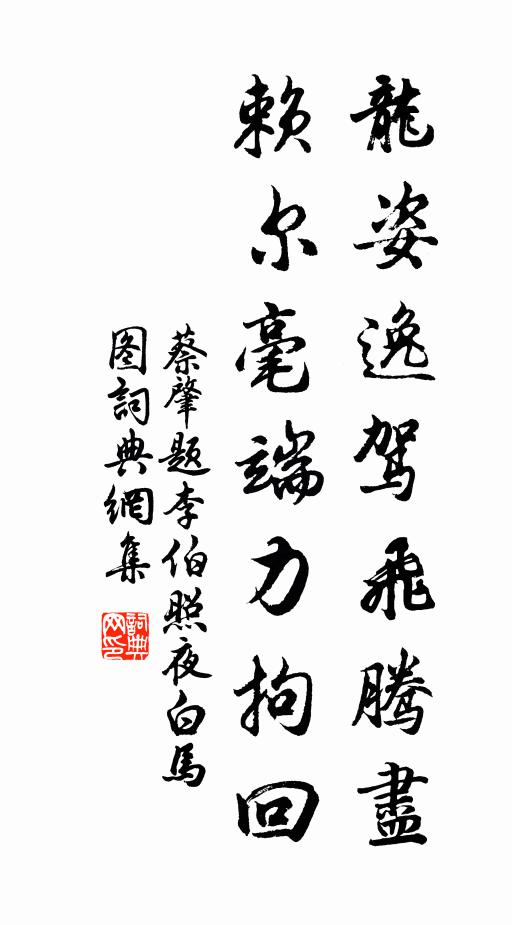 龍姿逸驾飛騰盡
赖尔毫端力拘回
蔡肇题李伯照夜白馬
图詞典網集
詞典网印